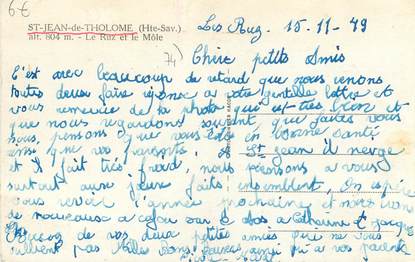 6€
ST-JEAN-de-THOLOME (Hte-Sav.)
alt. 804 m. - Le Ruz et le Môle
Les Ruz 15-11-49
74)
Chère petits Amis
C'est avec beaucoup de retard que nous venons
toutes deux faire réponse a votre gentille lettre et
vous remercie de ta photo qui est très bien et
que nous regardons souvent que faites vous
nous pensons que vous êtes en bonne santé
ainsi que vos parents a St jean il neige
et il fait très froid, nous pensons a vous
surtout aux jeux faits ensemblent, On espère
vous revoir l'année prochaine et nous irons
de nouveaux a sur le dos a Ethaine et jacques
de vos deux petites amies qui ne vous
oublient pas Milles Bons Baisers ainsi qu'a vos parents